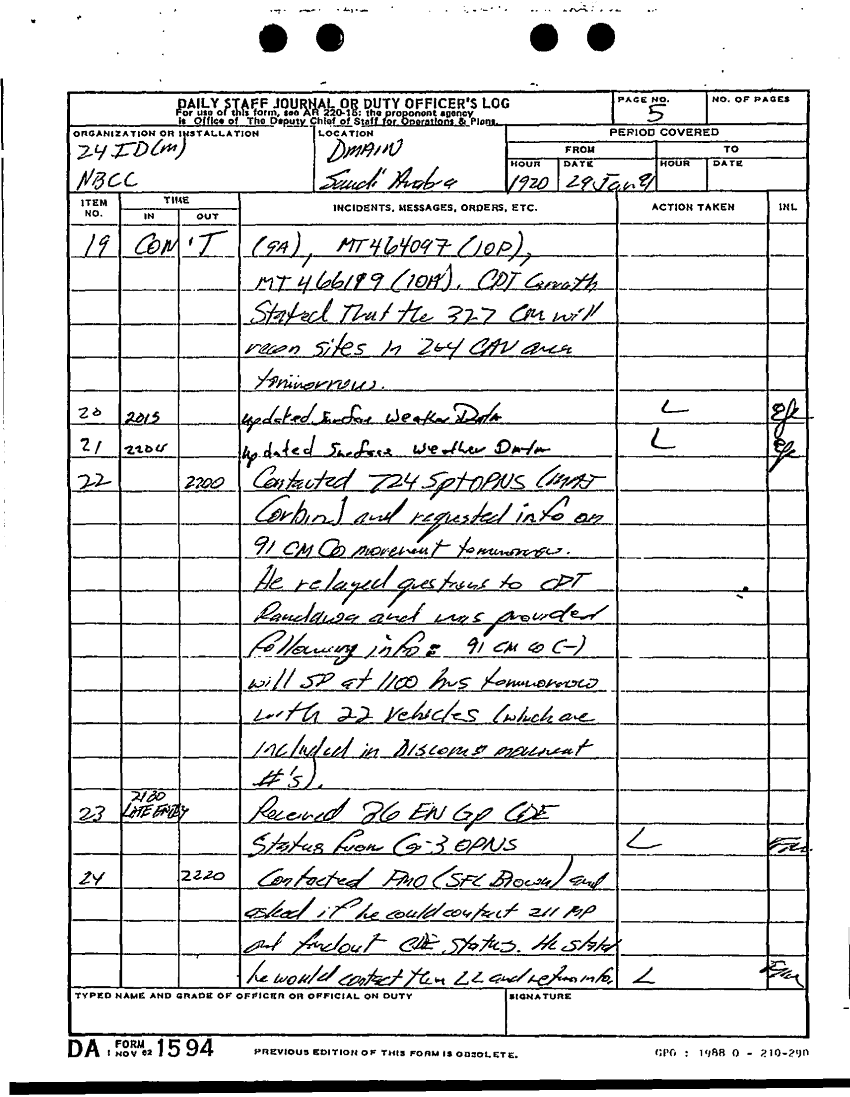 DAILY STAFF JOURNAL OR DUTY OFFICER'S LOG
For use of this form, see AR 220-15; the proponent agency
is Office of The Deputy Chief of Staff for Operations & Plans.
PAGE NO.
5
NO. OF PAGES
ORGANIZATION OR INSTALLATION
24 ID(M)
NBCC
LOCATION
DMAIN
Saudi Arabia
PERIOD COVERED
FROM
TO
HOUR
DATE
HOUR
DATE
1920
29 Jan 91
ITEM NO.
TIME
IN
OUT
INCIDENTS, MESSAGES, ORDERS, ETC.
ACTION TAKEN
INL
19 CON'T (9A), MT464097 (10P),
MT466199 (10A). CDT
Stated That the 327 CM will
recon sites in 2o4 CAV area
tommorrow.
20 2015 updated Surface Weather Data L
21 2204 updated Surface Weather Data L
22 2200 Contacted 724 Spt OPNS (MAJ
Corbin) and requested info on
91 CM Co movement tommorrow.
He relayed questions to CDT
Randawa and was provided
following info: 91 CM CO (-)
will SP at 1100 hrs tommorrow
with 22 vehicles (which are
included in Discoms movement
#'s).
23 2180 LATE ENTRY Received 36 EN Gp CDE
Status from G-3 OPNS L
24 2220 Contacted PMO (SFC Brown) and
asked if he could contact 211 MP
and findout CDE status. He stated
he would contact them LL and return info. L
TYPED NAME AND GRADE OF OFFICER OR OFFICIAL ON DUTY
SIGNATURE
DA FORM 1 NOV 62 1594
PREVIOUS EDITION OF THIS FORM IS OBSOLETE.
GPO : 1988 O - 210-290